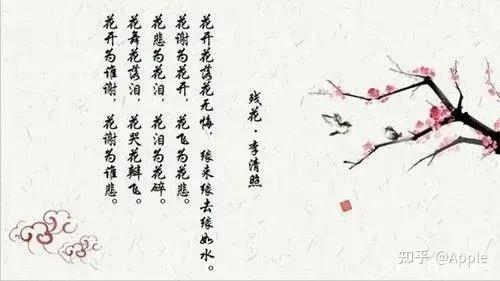 残花·李清照
花开花落花无悔，缘来缘去缘如水。
花谢为花开，花飞为花悲。
花悲为花泪，花泪为花碎。
花舞花落泪，花哭花瓣飞。
花开为谁谢，花谢为谁悲。
知乎 @Apple